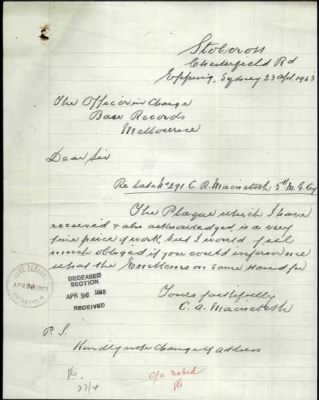 Stobcross
Chesterfield Rd
Epping, Sydney 23 Apl 1923
The Officer in Charge
Base Records
Melbourne
Dear Sir
Re late No 291 C. R. Macintosh 5th M. G. Coy
The Plaque which I have
received & also acknowledged, is a very
fine piece of work, but I would feel
much obliged if you could inform me
what the Emblems on same stand for
Yours faithfully
C. A. Macintosh
BASE RECORDS
APR 26 1923
DECEASED
SECTION
APR 26 1923
RECEIVED
P. S.
Kindly note Change of address
27/4
c/a noted